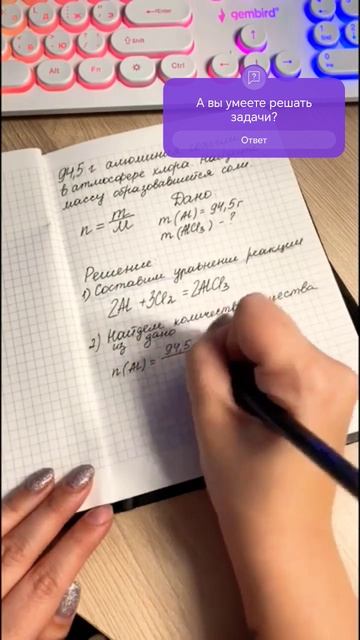 gembird
Shift
Enter
Alt
Fn
Ctrl
А вы умеете решать
задачи?
Ответ
94,5 г алюминия
в атмосфере хлора.
массу образовавшейся соли.
Дано:
n = m/M
m(Al) = 94,5 г
m(AlCl₃) - ?
Решение
1) Составим уравнение реакции
2Al + 3Cl₂ = 2AlCl₃
2) Найдем количество вещества
из дано
n(Al) = 94,5